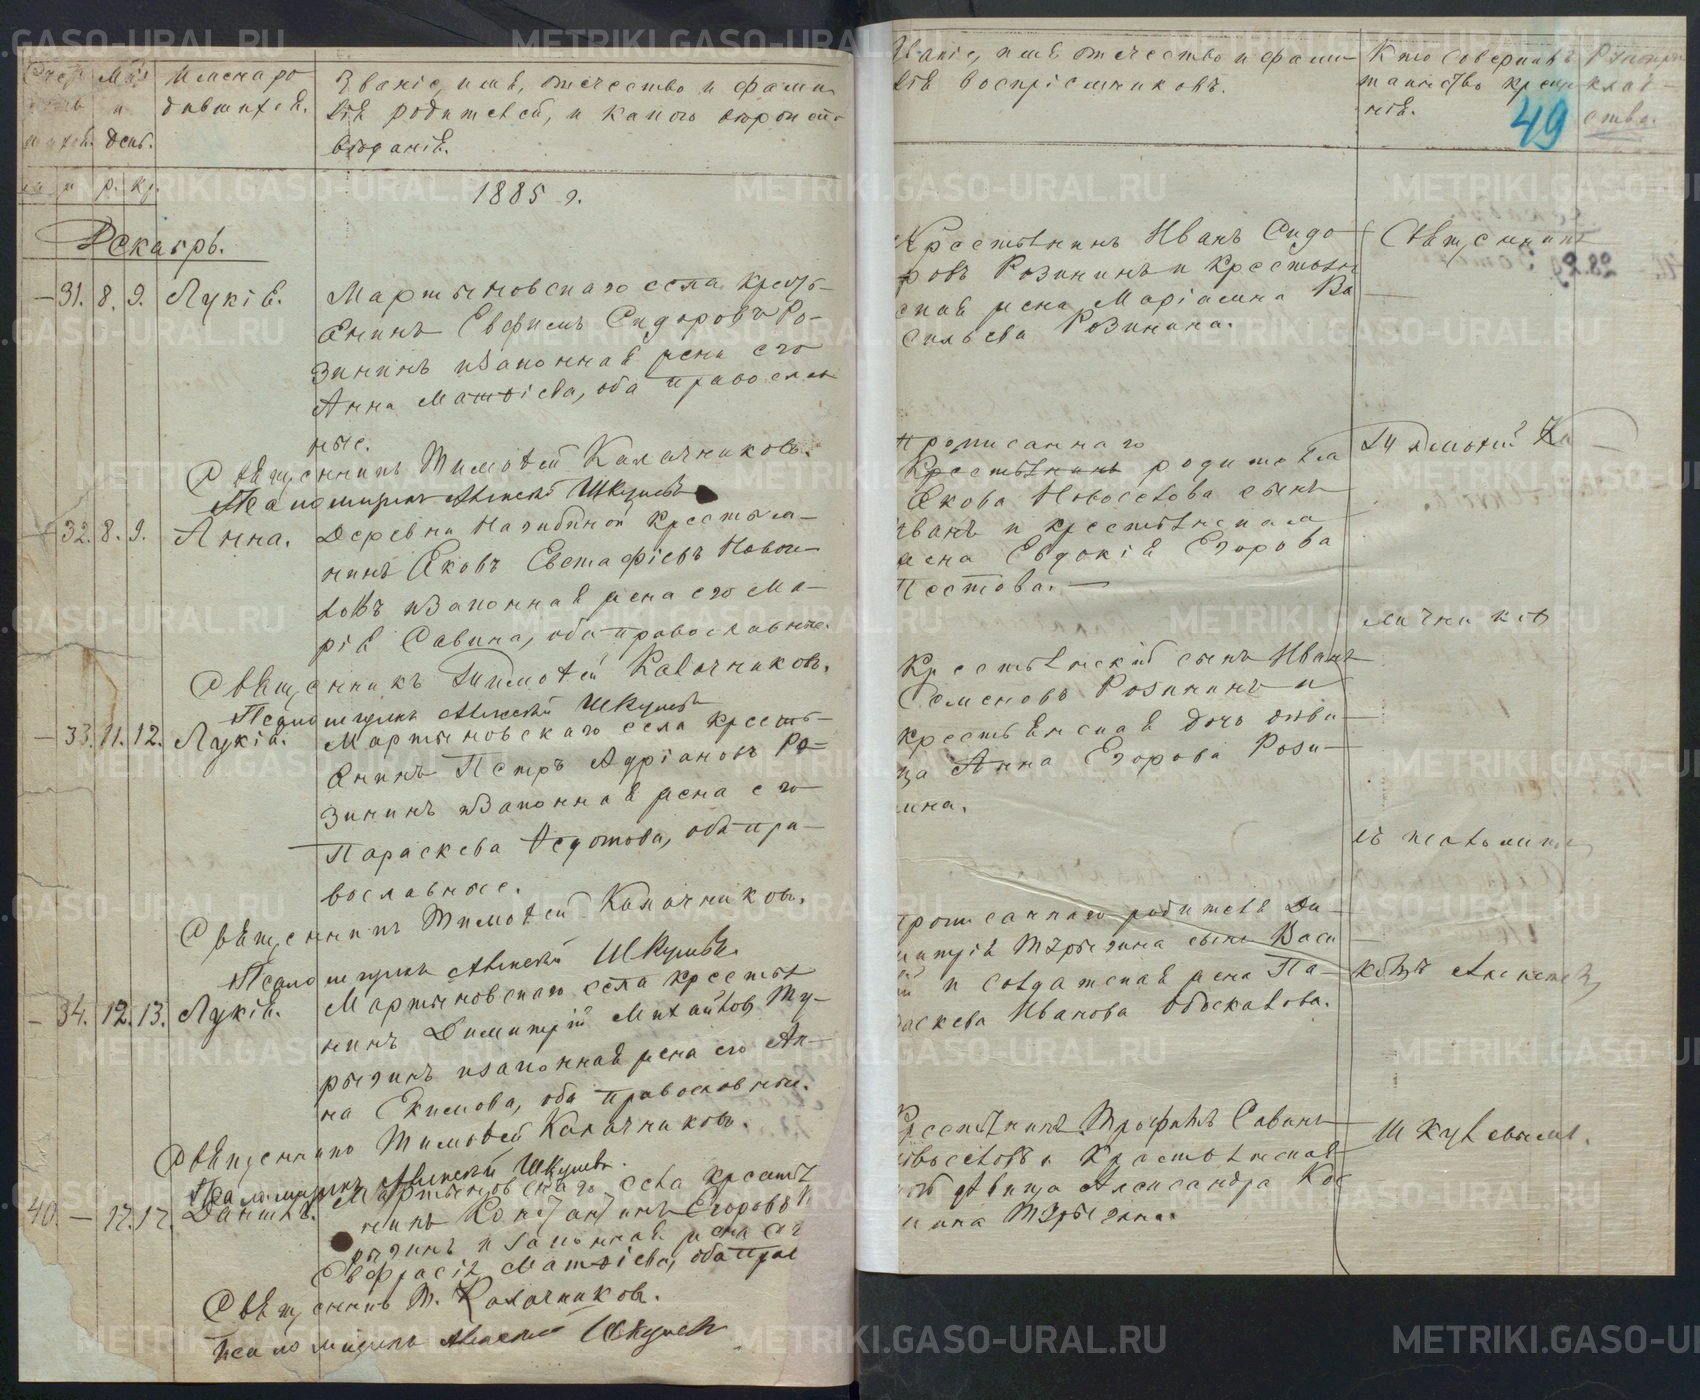 Счетъ Мѣс.
и
день.
Имена ро
дившихся.
Званіе, имя, отчество и фами
лія родителей, и какого вѣроиспо
вѣданія.
м. ж. р. кр.
1885 г.
Декабрь.
31. 8. 9. Лукія.
Мартыновскаго села крестья
янинъ Евфимъ Сидоровъ Ро-
зининъ и законная жена его
Анна Матѳіева, оба православ
ные.
Священникъ Тимоѳей Калачниковъ.
Псаломщикъ Алексѣй Шкулевъ
32. 8. 9. Анна.
Деревни крестья-
нинъ Яковъ Евстафіевъ Новосе-
ловъ и законная жена его Ма-
рія Савина, оба православные.
Священникъ Тимоѳей Калачниковъ.
Псаломщикъ Алексѣй Шкулевъ
33. 11. 12. Лукія.
Мартыновскаго села кресть-
янинъ Петръ Адріановъ Ро-
зининъ и законная жена его
Параскева Ѳедотова, оба пра-
вославные.
Священникъ Тимоѳей Калачниковъ.
Псаломщикъ Алексѣй Шкулевъ
34. 12. 13. Лукія.
Мартыновскаго села крестья
нинъ Димитрій Михайловъ Ту-
рыгинъ и законная жена его Ан-
на Екимова, оба православные.
Священникъ Тимоѳей Калачниковъ.
Псаломщикъ Алексѣй Шкулевъ.
40. — 17. 17. Даніилъ.
Мартыновскаго села крестья
нинъ Константинъ Егоровъ
рыгинъ и законная жена его
Евфрасія Матѳіева, оба прав
Священникъ Т. Калачниковъ.
Псаломщикъ Алексѣй Шкулевъ
Званіе, имя отчество и фами
лія воспріемниковъ.
Кто совершилъ
таинство креще
нія.
49
Крестьянинъ Иванъ Сидо
ровъ Розининъ и крестьян
ская жена Маріамна Ва
сильева Розинина.
прописаннаго
Крестьянинъ родителя
Якова Новоселова сынъ
Иванъ и крестьянская
жена Евдокія Егорова
Пестова.
Крестьянскій сынъ Иванъ
Семеновъ Розининъ и
крестьянская дочь дѣви
ца Анна Егорова Рози-
нина.
прописаннаго родителя Ди-
митрія Турыгина сынъ Васи
лій и солдатская жена Па-
раскева Иванова Обыскалова.
Крестьянинъ Трофимъ Савинъ
Новоселовъ и крестьянская
дѣвица Александра Кос
Турыгина.
Священникъ
Тимоѳей Ка
лачниковъ
съ псаломщи
комъ Алексѣемъ
Шкулевымъ.
METRIKI.GASO-URAL.RU